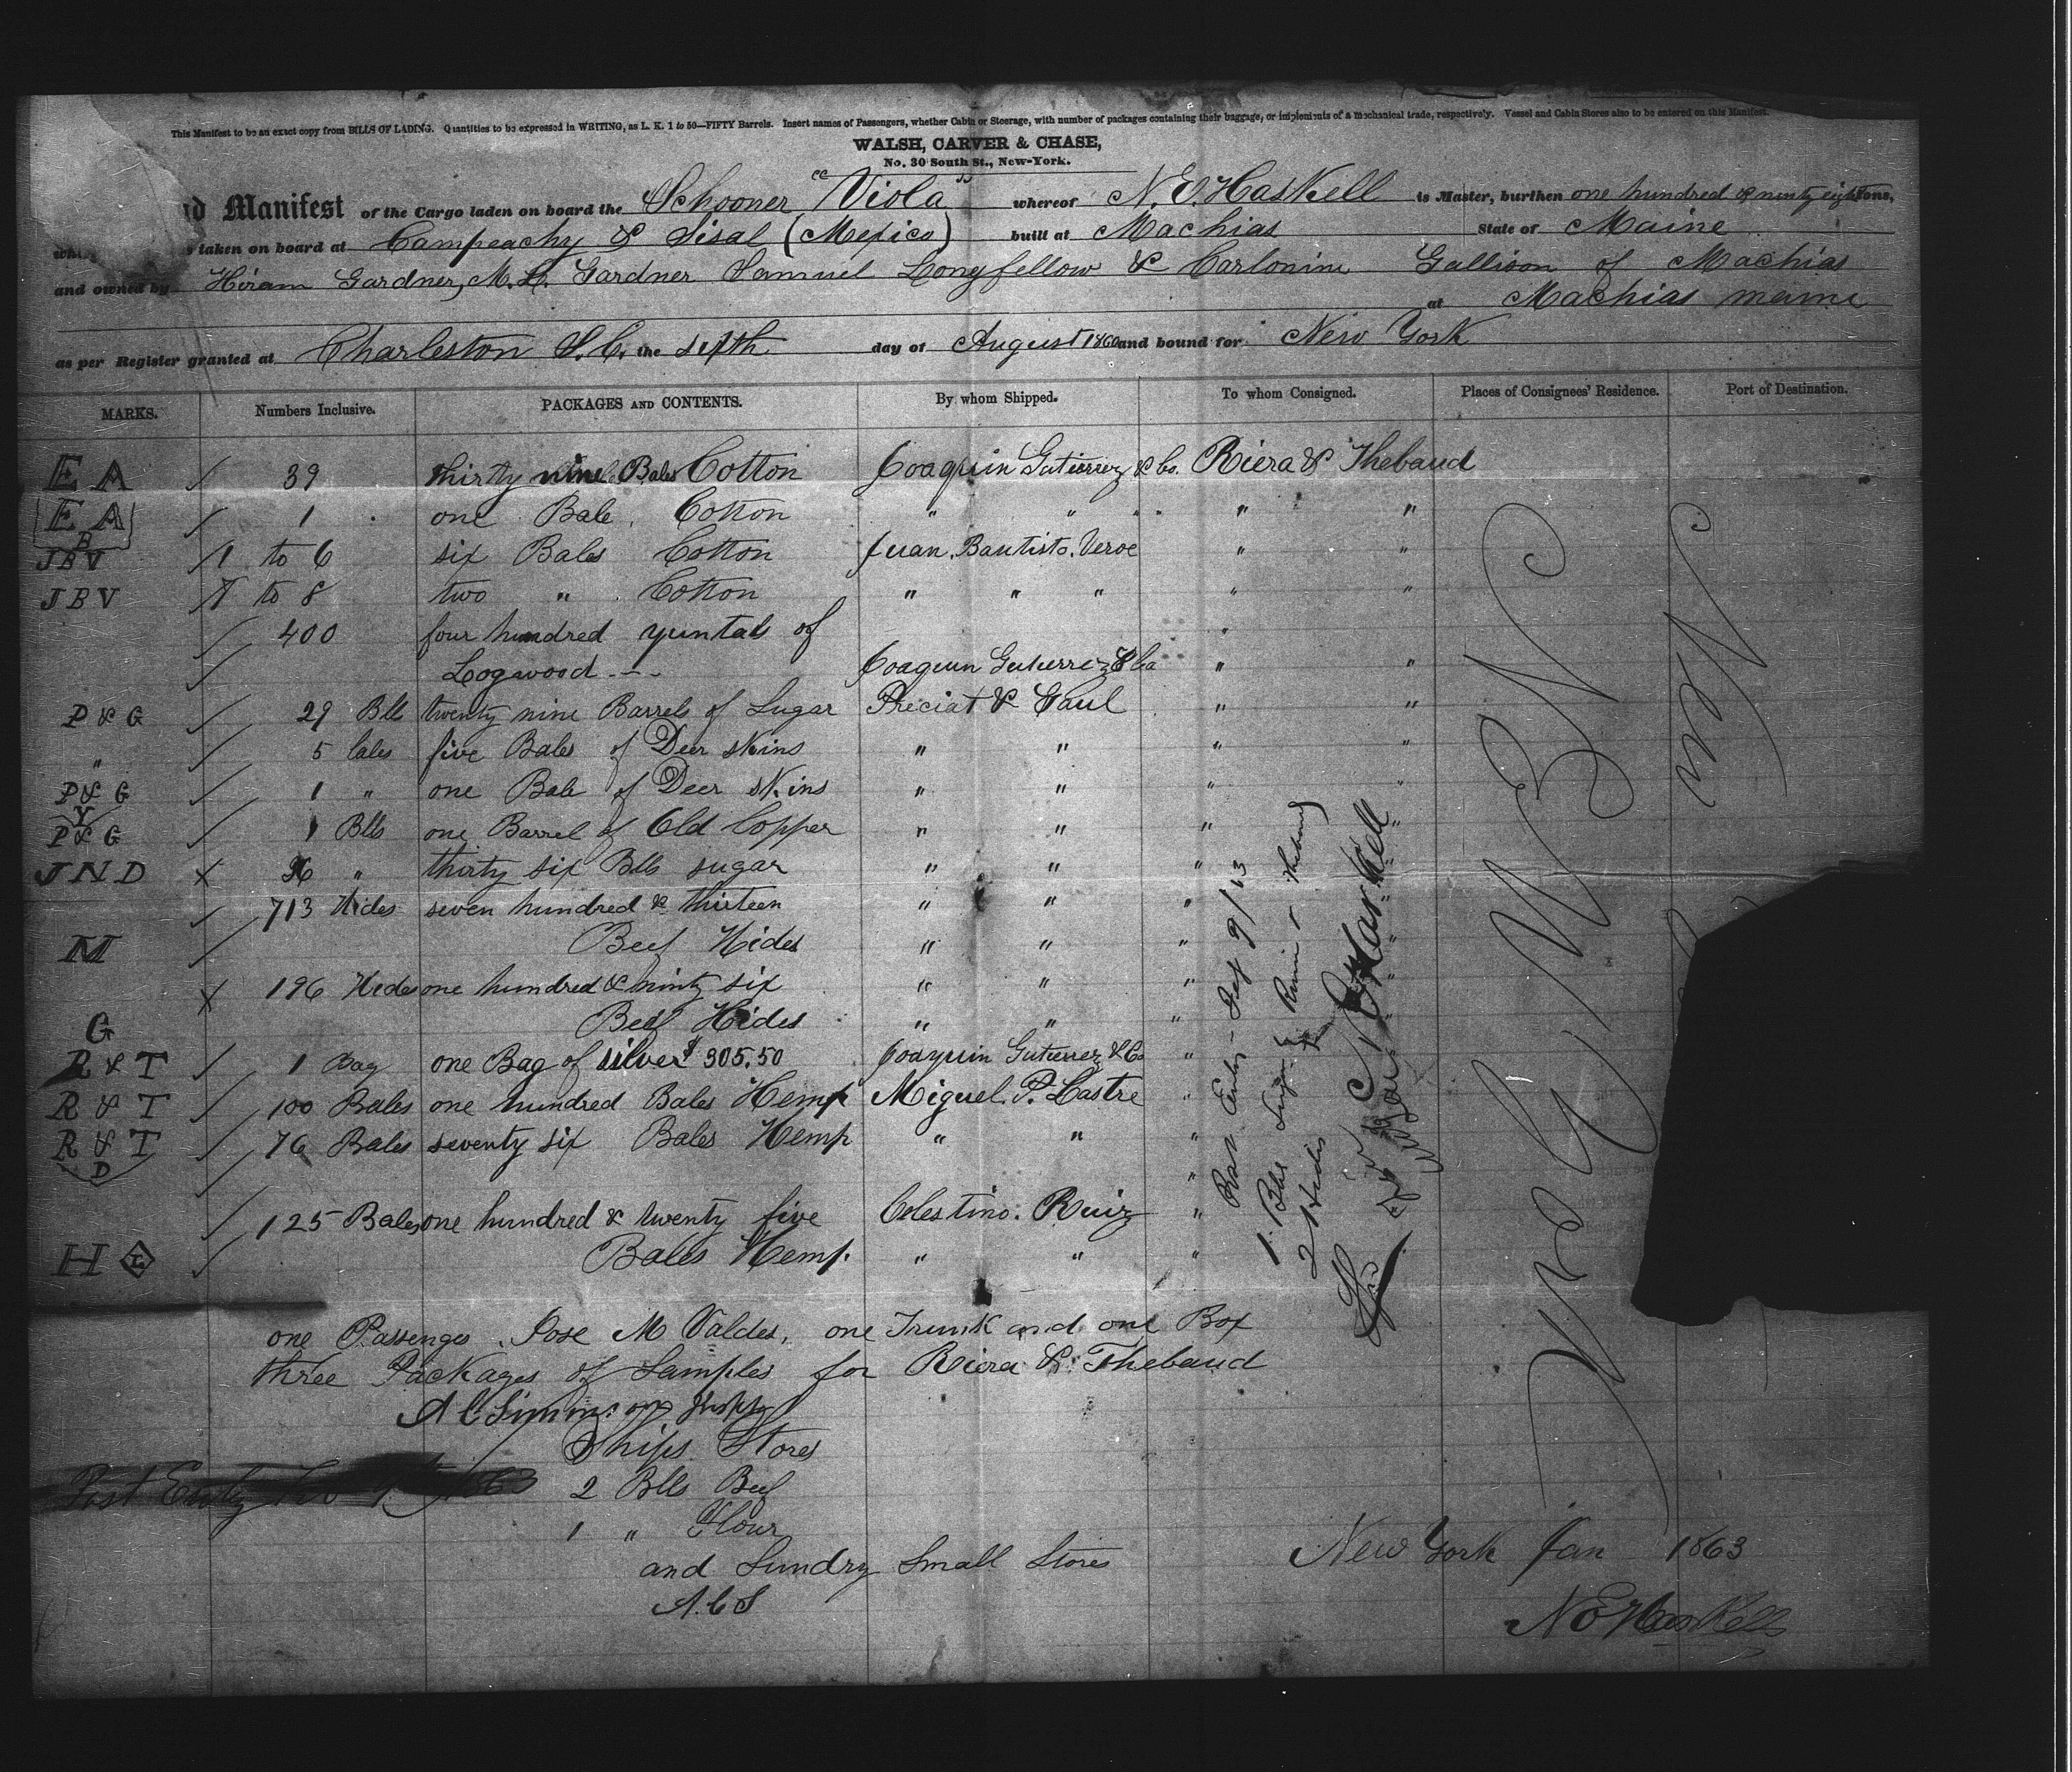 This Manifest to be an exact copy from BILLS OF LADING. Quantities to be expressed in WRITING, as L. K. 1 to 50—FIFTY Barrels. Insert names of Passengers, whether Cabin or Steerage, with number of packages containing their baggage, or implements of a mechanical trade, respectively. Vessel and Cabin Stores also to be entered on this Manifest.
WALSH, CARVER & CHASE,
No. 30 South St., New-York.
Manifest of the Cargo laden on board the Schooner "Viola" whereof N. E. Haskell is Master, burthen one hundred & ninty eight tons,
taken on board at Campeachy & Sisal (Mexico) built at Machias State of Maine
and owned by Hiram Gardner, M. L. Gardner Samuel Longfellow & Gallison of Machias
at Machias
as per Register granted at Charleston S. C. the day of August 1860 and bound for New York
MARKS. Numbers Inclusive. PACKAGES AND CONTENTS. By whom Shipped. To whom Consigned. Places of Consignees' Residence. Port of Destination.
E A / 39 thirty nine Bales Cotton Joaquin Gutierrez & Co. Riera & Thebaud
E A B / 1 one Bale Cotton " " " " "
J B V / 1 to 6 six Bales Cotton Juan Bautista " "
J B V / 7 to 8 two " Cotton " " " " "
/ 400 four hundred quntals of "
/ Logwood Joaquin Gutierrez & Co " "
P & G / 29 Blls twenty nine Barrels of Sugar Preciat & Gaul " "
" / 5 bales five Bales of Deer skins " " " "
P & G / 1 " one Bale of Deer skins " " " "
Y
P & G / 1 Blls one Barrel of Old Copper " " " "
J N D x 36 " thirty six Blls sugar " " " "
/ 713 Hides seven hundred & thirteen " " " "
M / Beef Hides " " " "
x 196 Hides one hundred & ninty six " " " "
G Beef Hides " " " "
R & T / 1 Bag one Bag of silver $ 305.50 Joaquin Gutierrez & Co "
R & T / 100 Bales one hundred Bales Hemp Miguel P. Castre "
R & T / 76 Bales seventy six Bales Hemp " " "
D / "
/ 125 Bales one hundred & twenty five Celestino Ruiz "
H L / Bales Hemp " " "
1 Blls Sugar
2 Hides
N E Haskell
one Passenge Jose M Valdes, one Trunk and one Box
three Packages of Samples for Riera & Thebaud
Ships Stores
Post Entry 1863
2 Blls Beef
1 " Flour
and Sundry Small Stores
A. C S
New York Jan 1863
N E Haskell